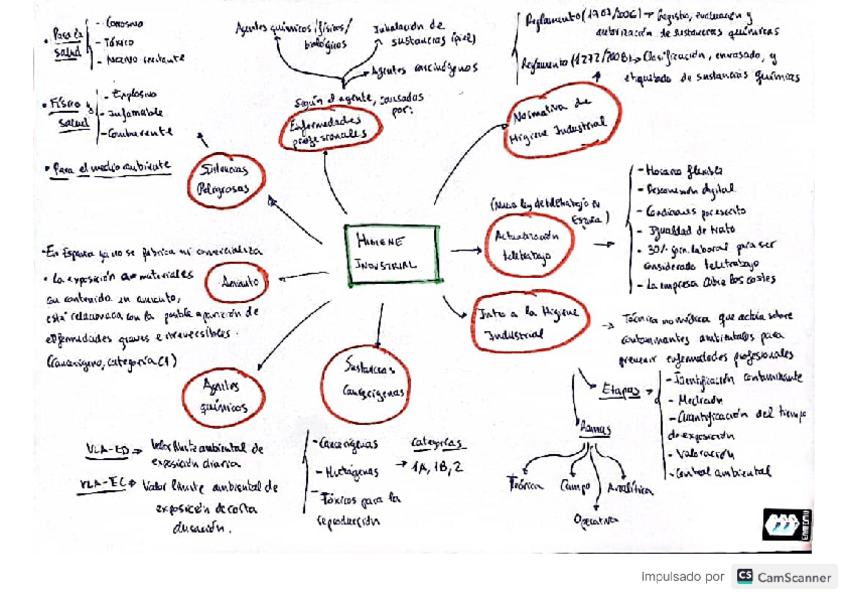 • Para la salud
- Corrosivo
- Tóxico
- Nocivo irritante
• Físico y salud
- Explosivo
- Inflamable
- Comburente
• Para el medio ambiente
Sustancias
Peligrosas
Agentes químicos/físicos/
biológicos
Inhalación de
sustancias (piel)
Agentes carcinógenos
Según el agente, causadas
por:
Enfermedades
profesionales
Reglamento (1907/2006) → Registro, evaluación y
autorización de sustancias químicas
Reglamento (1272/2008) → Clasificación, envasado, y
etiquetado de sustancias químicas
Normativa de
Higiene Industrial
HIGIENE
INDUSTRIAL
(Nueva ley del teletrabajo en
España)
Actualización
teletrabajo
- Horario flexible
- Desconexión digital
- Condiciones por escrito
- Igualdad de trato
- 30% jorn. laboral para ser
considerado teletrabajo
- La empresa cubre los costes
• En España ya no se fabrica ni comercializa
• La exposición a materiales
con contenido en amianto,
está relacionada con la posible aparición de
enfermedades graves e irreversibles.
(Cancerígeno, categoría C1)
Amianto
Intro a la Higiene
Industrial
→ Técnica no médica que actúa sobre
contaminantes ambientales para
prevenir enfermedades profesionales
Etapas
- Identificación contaminante
- Medición
- Cuantificación del tiempo
de exposición
- Valoración
- Control ambiental
Ramas
Teórica
Campo
Analítica
Operativa
Agentes
químicos
VLA-ED → Valor límite ambiental de
exposición diaria
VLA-EC → Valor límite ambiental de
exposición de corta
duración.
Sustancias
Cancerígenas
- Cancerígenas
- Mutágenas
- Tóxicos para la
reproducción
Categorías
→ 1A, 1B, 2
Impulsado por CS CamScanner